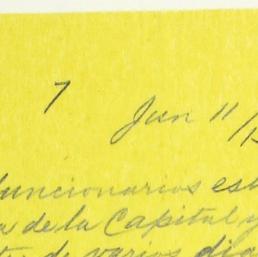 7
Jun 11/
funcionarios est
a de la Capital y
de varios dia